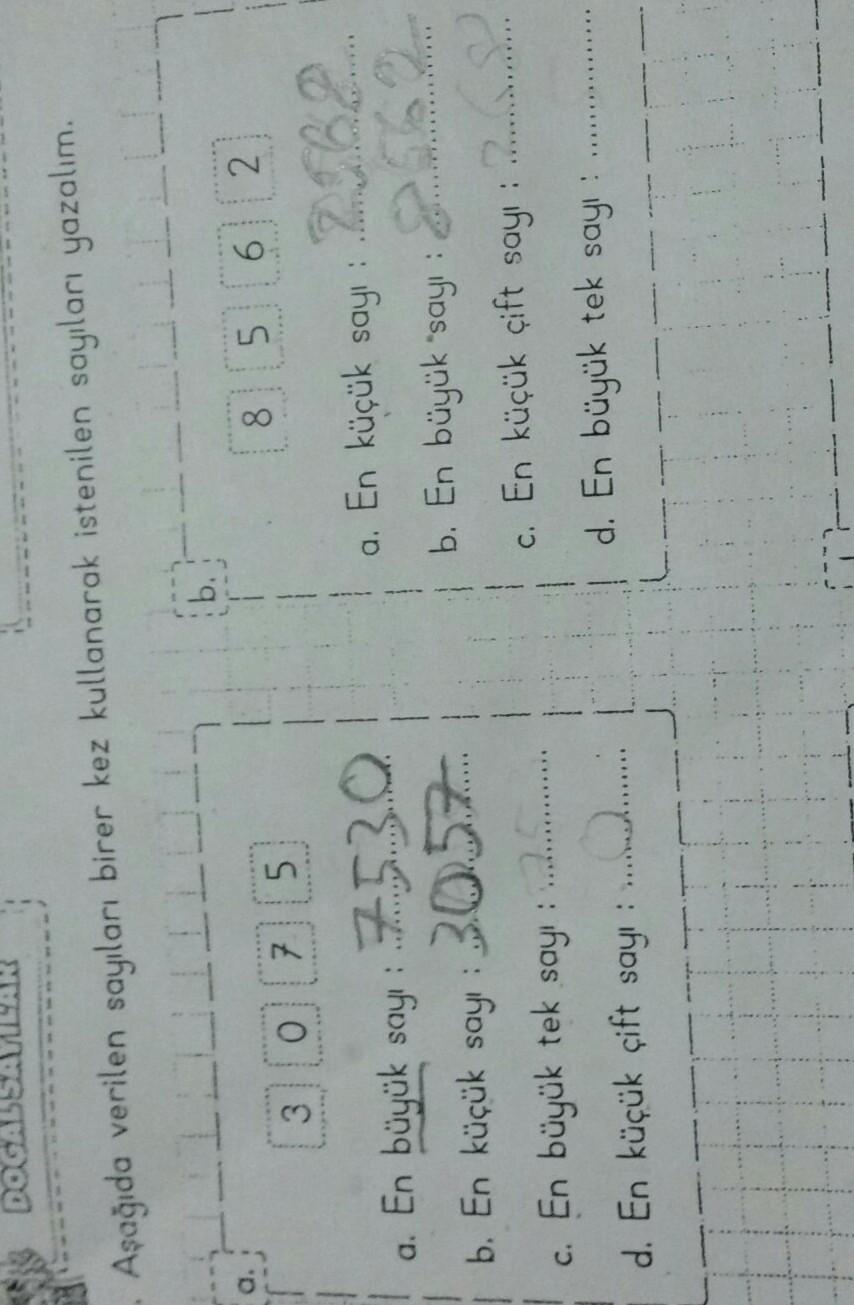 DOĞAL SAYILAR
Aşağıda verilen sayıları birer kez kullanarak istenilen sayıları yazalım.
a.
3 0 7 5
a. En büyük sayı : 7530
b. En küçük sayı : 3057
c. En büyük tek sayı :
d. En küçük çift sayı :
b.
8 5 6 2
a. En küçük sayı :
b. En büyük sayı :
c. En küçük çift sayı :
d. En büyük tek sayı :